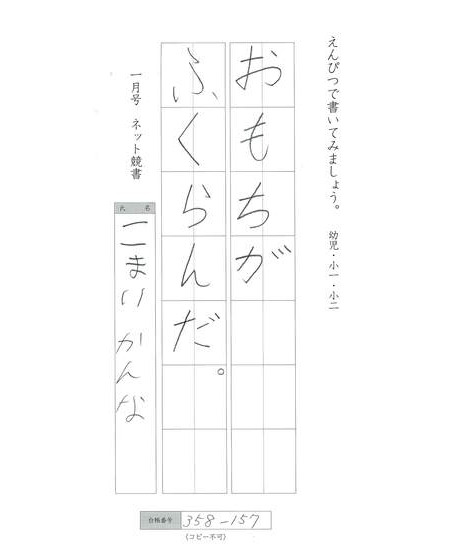 えんぴつで書いてみましょう。 幼児・小一・小二
おもちが
ふくらんだ。
一月号 ネット競書
氏名
こまり かんな
台帳番号 358-157
(コピー不可)